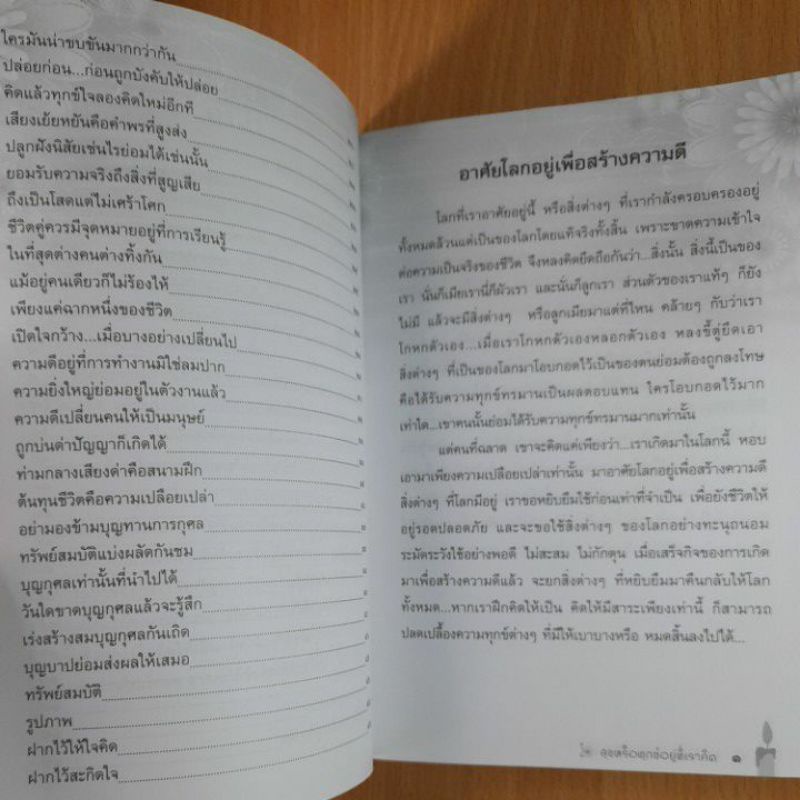 ใครมันน่าขบขันมากกว่ากัน
ปล่อยก่อน...ก่อนถูกบังคับให้ปล่อย
คิดแล้วทุกข์ใจลองคิดใหม่อีกที
เสียงเย้ยหยันคือคำพรที่สูงส่ง
ปลูกฝังนิสัยเช่นไรย่อมได้เช่นนั้น
ยอมรับความจริงถึงสิ่งที่สูญเสีย
ถึงเป็นโสดแต่ไม่เศร้าโศก
ชีวิตคู่ควรมีจุดหมายอยู่ที่การเรียนรู้
ในที่สุดต่างคนต่างทิ้งกัน
แม้อยู่คนเดียวก็ไม่ร้องไห้
เพียงแค่ฉากหนึ่งของชีวิต
เปิดใจกว้าง...เมื่อบางอย่างเปลี่ยนไป
ความดีอยู่ที่การทำงานมิใช่ลมปาก
ความยิ่งใหญ่ย่อมอยู่ในตัวงานแล้ว
ความดีเปลี่ยนคนให้เป็นมนุษย์
ถูกบ่นด่าปัญญาก็เกิดได้
ท่ามกลางเสียงด่าคือสนามฝึก
ต้นทุนชีวิตคือความเปลือยเปล่า
อย่ามองข้ามบุญทานการกุศล
ทรัพย์สมบัติแบ่งผลัดกันชม
บุญกุศลเท่านั้นที่นำไปได้
วันใดขาดบุญกุศลแล้วจะรู้สึก
เร่งสร้างสมบุญกุศลกันเถิด
บุญบาปย่อมส่งผลให้เสมอ
ทรัพย์สมบัติ
รูปภาพ
ฝากไว้ให้ใจคิด
ฝากไว้สะกิดใจ
อาศัยโลกอยู่เพื่อสร้างความดี
โลกที่เราอาศัยอยู่นี้ หรือสิ่งต่างๆ ที่เรากำลังครอบครองอยู่
ทั้งหมดล้วนแต่เป็นของโลกโดยแท้จริงทั้งสิ้น เพราะขาดความเข้าใจ
ต่อความเป็นจริงของชีวิต จึงหลงคิดยึดถือกันว่า...สิ่งนั้น สิ่งนี้เป็นของ
เรา นั่นก็เมียเรานี่ก็ผัวเรา และนั่นก็ลูกเรา ส่วนตัวของเราแท้ๆ ก็ยัง
ไม่มี แล้วจะมีสิ่งต่างๆ หรือลูกเมียมาแต่ที่ไหน คล้ายๆ กับว่าเรา
โกหกตัวเอง...เมื่อเราโกหกตัวเองหลอกตัวเอง หลงขี้ตู่ยึดเอา
สิ่งต่างๆ ที่เป็นของโลกมาโอบกอดไว้เป็นของตนย่อมต้องถูกลงโทษ
คือได้รับความทุกข์ทรมานเป็นผลตอบแทน ใครโอบกอดไว้มาก
เท่าใด...เขาคนนั้นย่อมได้รับความทุกข์ทรมานมากเท่านั้น
แต่คนที่ฉลาด เขาจะคิดแค่เพียงว่า...เราเกิดมาในโลกนี้ หอบ
เอามาเพียงความเปลือยเปล่าเท่านั้น มาอาศัยโลกอยู่เพื่อสร้างความดี
สิ่งต่างๆ ที่โลกมีอยู่ เราขอหยิบยืมใช้ก่อนเท่าที่จำเป็น เพื่อยังชีวิตให้
อยู่รอดปลอดภัย และจะขอใช้สิ่งต่างๆ ของโลกอย่างทะนุถนอม
ระมัดระวังใช้อย่างพอดี ไม่สะสม ไม่กักตุน เมื่อเสร็จกิจของการเกิด
มาเพื่อสร้างความดีแล้ว จะยกสิ่งต่างๆ ที่หยิบยืมมาคืนกลับให้โลก
ทั้งหมด...หากเราฝึกคิดให้เป็น คิดให้มีสาระเพียงเท่านี้ ก็สามารถ
ปลดเปลื้องความทุกข์ต่างๆ ที่มีให้เบาบางหรือ หมดสิ้นลงไปได้...
สุขหรือทุกข์อยู่ที่เราคิด ๑